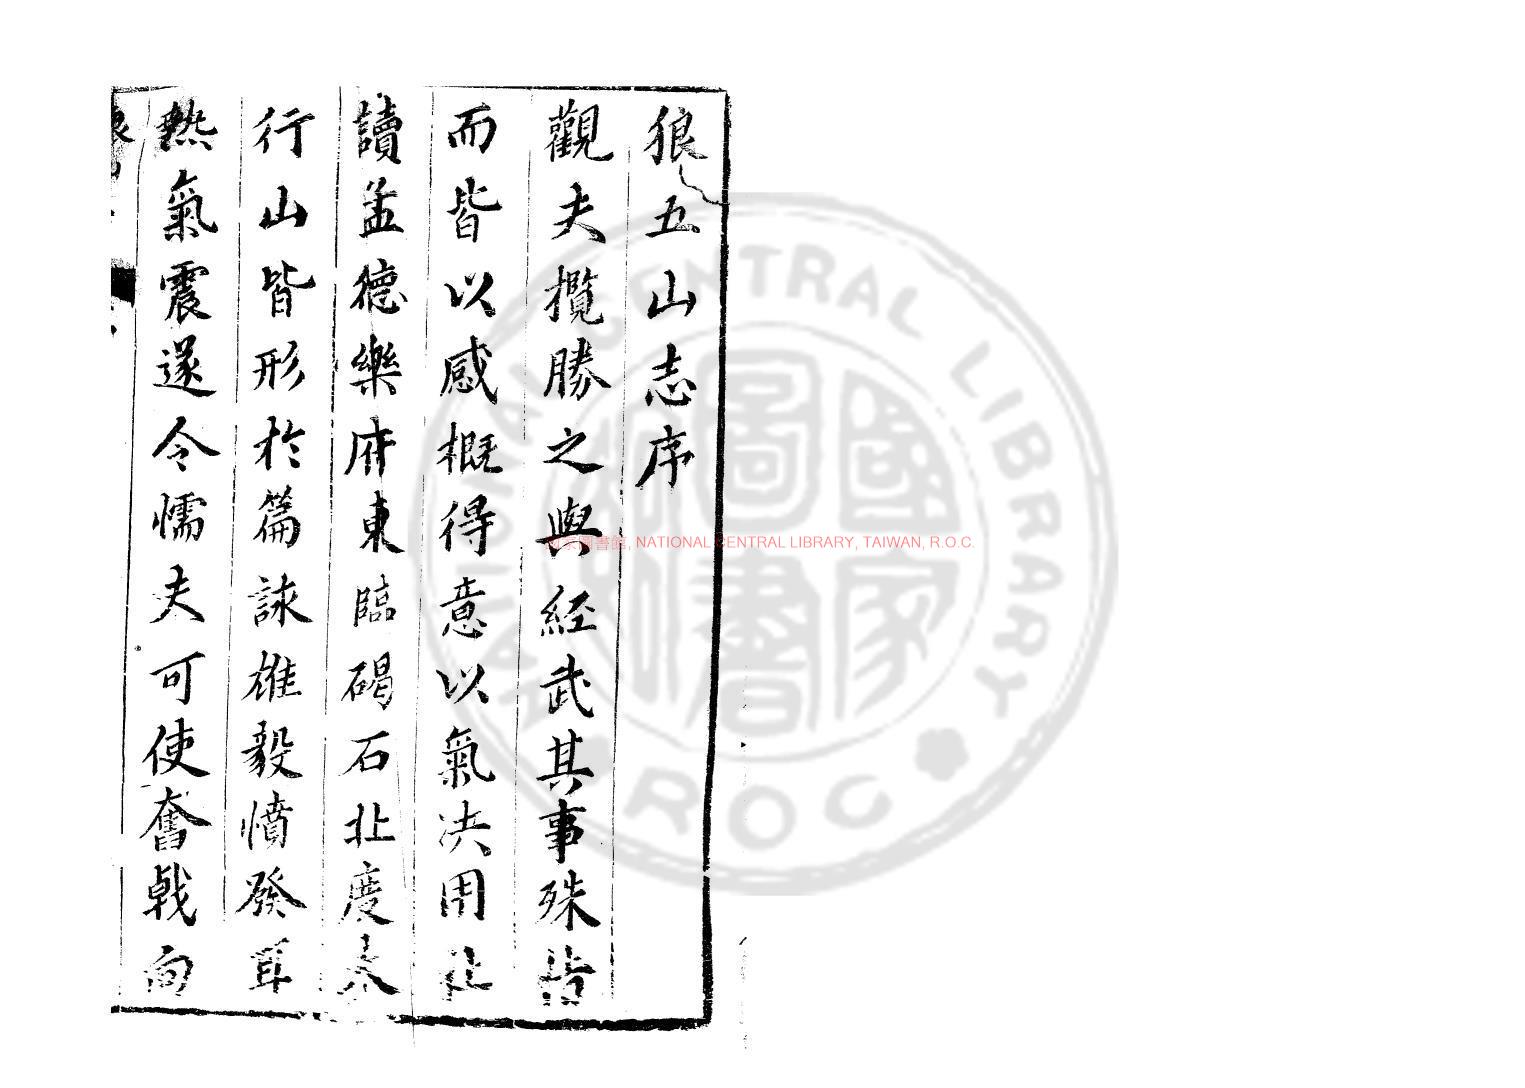 狼五山志序
觀夫攬勝之與經武其事殊
而皆以感概得意以氣决用
讀孟德樂府東臨碣石北度太
行山皆形於篇詠雄毅憤發耳
熱氣震遂令懦夫可使奮戟向
國家圖書館, NATIONAL CENTRAL LIBRARY, TAIWAN, R.O.C.
NATIONAL CENTRAL LIBRARY
ROC
國家
圖書